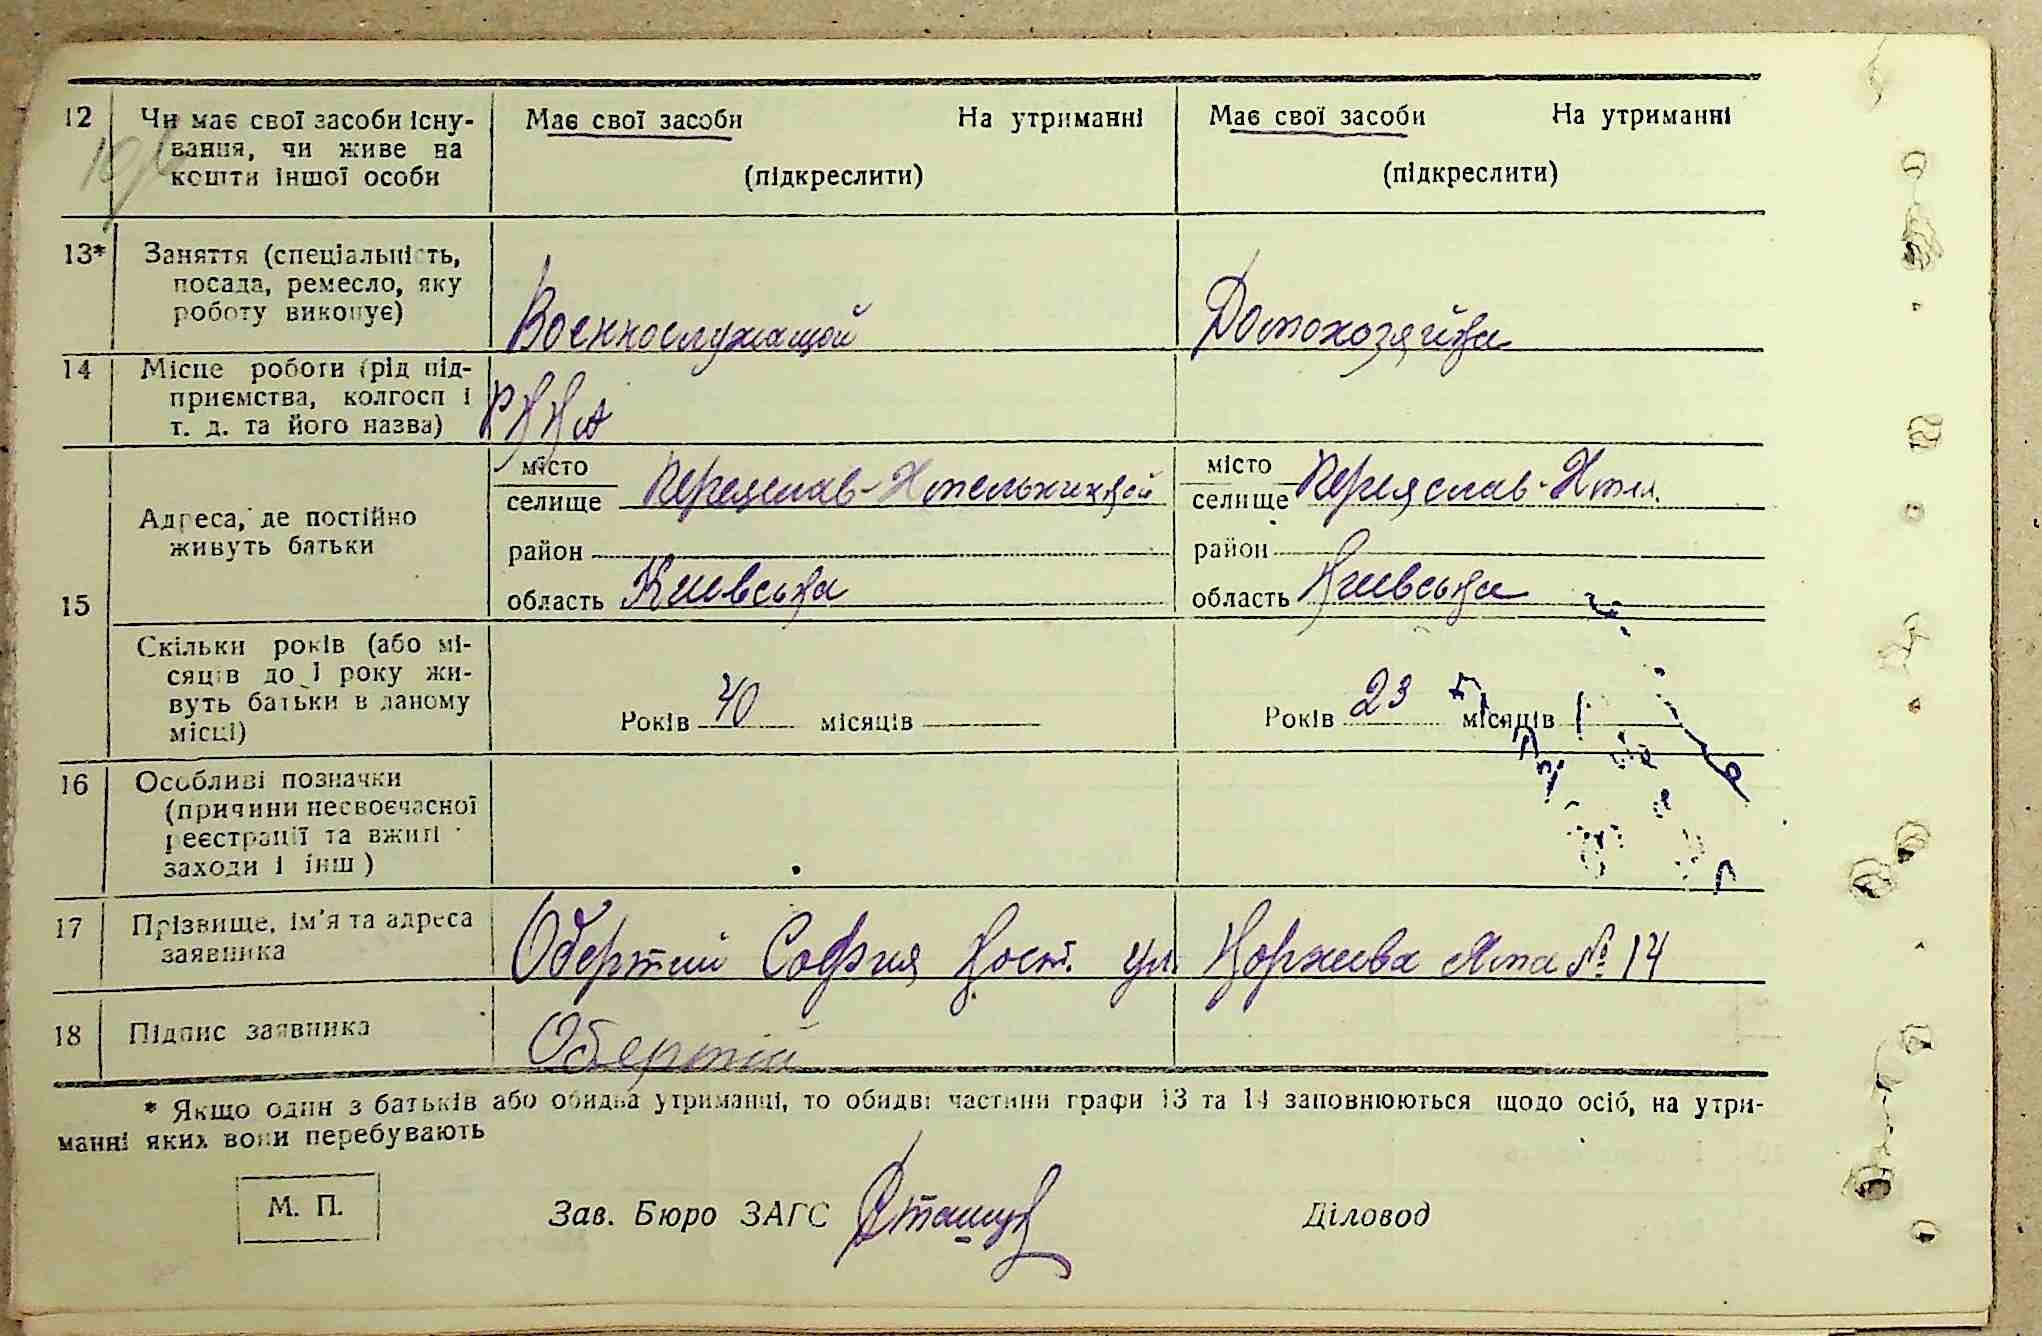 12 Чи має свої засоби існу-
вання, чи живе на
кошти іншої особи
Має свої засоби На утриманні
(підкреслити)
Має свої засоби На утриманні
(підкреслити)
13* Заняття (спеціальність,
посада, ремесло, яку
роботу виконує)
Военнослужащой
Домохозяйка
14 Місце роботи (рід під-
приємства, колгосп і
т. д. та його назва)
РККА
15
Адреса, де постійно
живуть батьки
місто
селище Переяслав-Хмельницкой
район
область Киевська
місто
селище Переяслав-Хмел.
район
область Киевська
Скільки років (або мі-
сяців до 1 року жи-
вуть батьки в даному
місці)
Років 40 місяців
Років 23 місяців
16 Особливі позначки
(причини несвоєчасної
реєстрації та вжиті
заходи і інш)
17 Прізвище, ім'я та адреса
заявника
Обертий София Кост. ул. Коржева Яма № 14
18 Підпис заявника
Обертій
* Якщо один з батьків або обидва утриманці, то обидві частини графи 13 та 14 заповнюються щодо осіб, на утри-
манні яких вони перебувають
М. П.
Зав. Бюро ЗАГС
Діловод